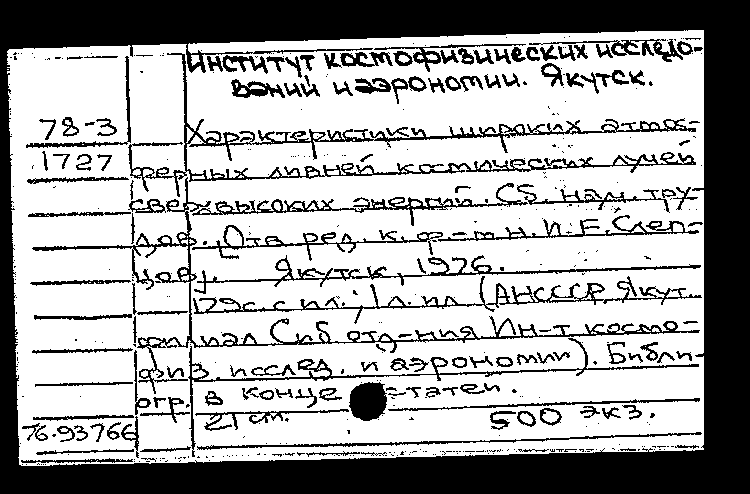 Институт космофизических исследо-
ваний и аэрономии. Якутск.
78-3
Характеристики широких атмос-
1727
ферных ливней космических лучей
сверхвысоких энергий. Сб. науч. тру-
дов. [Отв. ред. к. ф.-м. н. И. Е. Слеп-
цов]. Якутск, 1976.
179 с. с ил.; 1 л. ил (АН СССР. Якут.
филиал Сиб отд-ния Ин-т космо-
физ. исслед. и аэрономии). Библи-
огр. в конце статей.
21 см. 500 экз.
76-93766